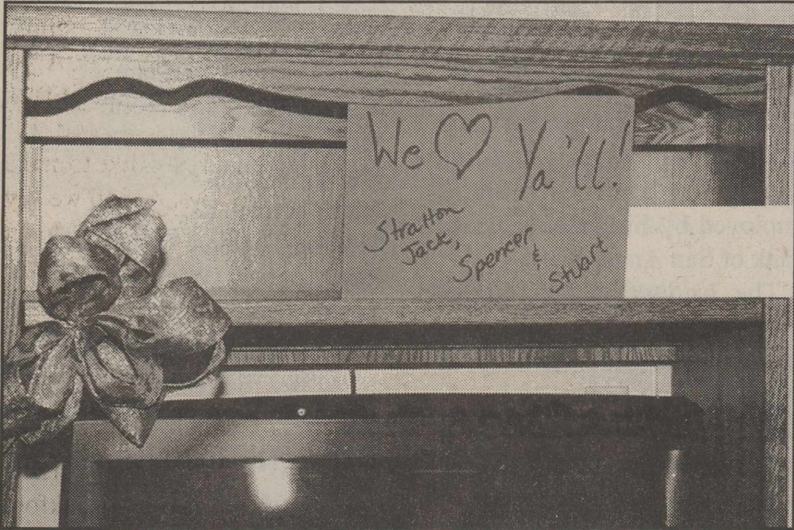 We ♡ Ya'll!
Stratton
Jack,
Spencer
&
Stuart